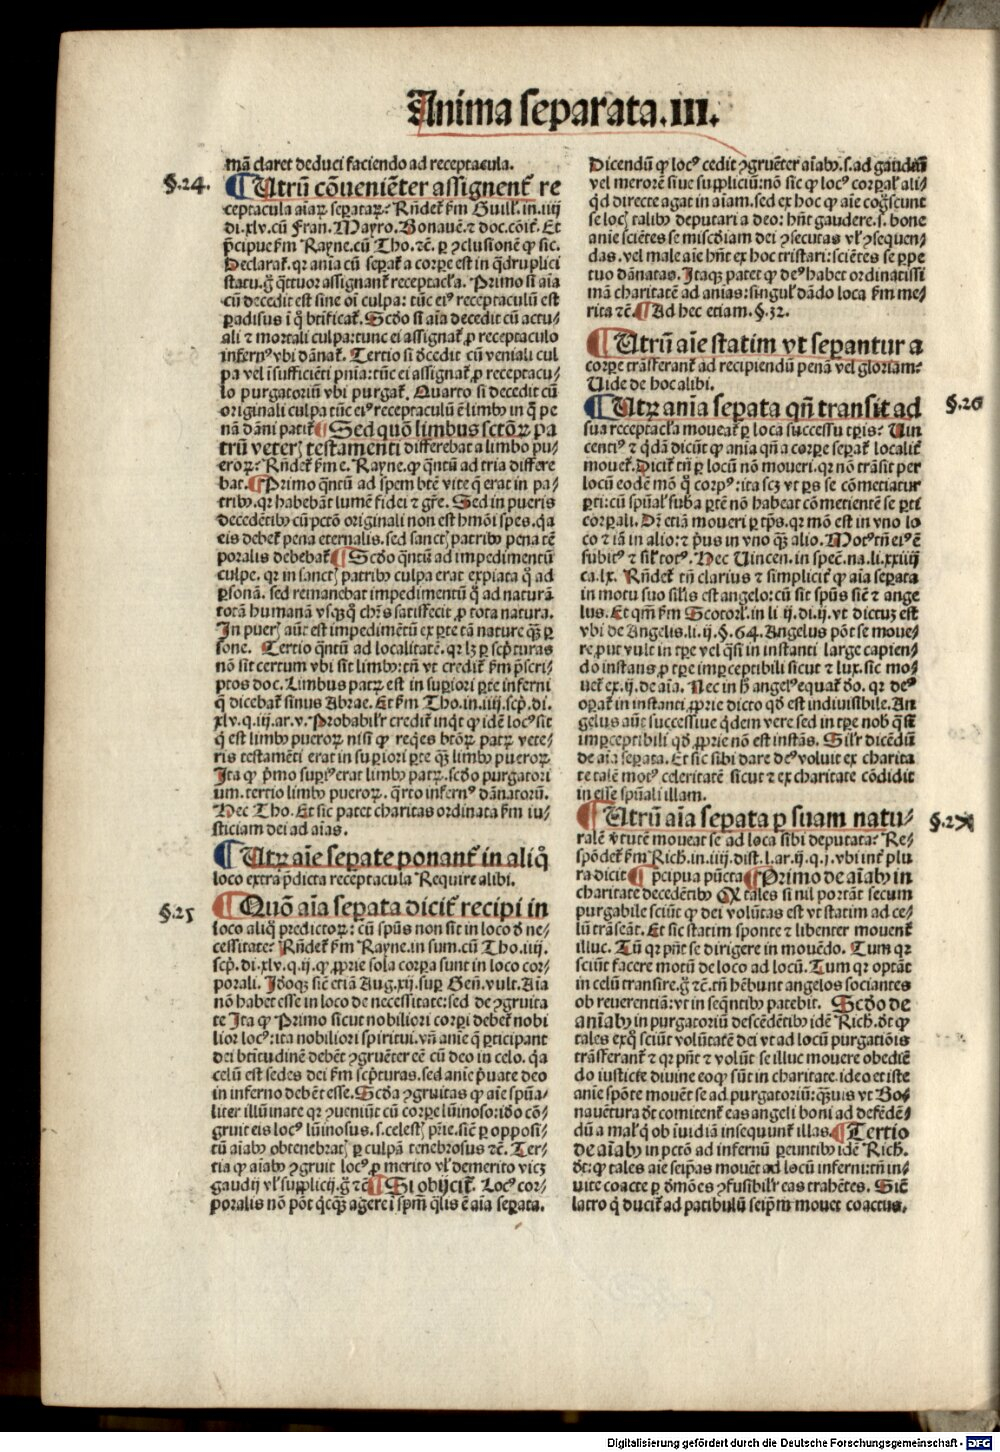 Anima separata.III.
mã claret deduci faciendo ad receptacula.
§.24. Utrũ cõueniẽter assignent᷑ re
ceptacula aĩaꝝ sepataꝝ? Rñdet᷑ ẜm Guill᷑.in.iiij
di.xlv.cũ Fran.Mayro.Bonauẽ.⁊ doc.cõit᷑.Et
p̃cipue ẜm Rayne.cũ Tho.⁊c̃.ꝑ ꝯclusionẽ ꝙ sic.
Declarat᷑.qꝛ anĩa cũ sepat᷑ a corpe est in q̃druplici
statu.g̃ q̃ttuor assignant᷑ receptac̃la.Primo si aĩa
cũ decedit est sine oĩ culpa:tũc eiꝰ receptaculũ est
ꝑadisus ĩ q̃ btificat᷑.Scd̃o si aĩa decedit cũ actu-
ali ⁊ mortali culpa:tunc ei assignat᷑ ꝓ receptaculo
infernꝰ vbi dãnat᷑. Tertio si d̃cedit cũ veniali cul
pa vel ĩsufficiẽti pñia:tũc ei assignat᷑ ꝓ receptacu-
lo purgatoriũ vbi purgat᷑. Quarto si decedit cũ
originali culpa tũc eiꝰ receptaculũ ẽ limbꝰ in q̃ pe
nã dãni patit᷑ Sed quõ limbus sctõꝝ pa
trũ veterꝭ testamenti differebat a limbo pu-
eroꝝ? Rñdet᷑ ẜm e. Rayne.ꝙ q̃ntũ ad tria differe
bat. Primo q̃ntũ ad spem btẽ vite q̃ erat in pa-
tribꝰ.qꝛ habebãt lumẽ fidei ⁊ gr̃e. Sed in pueris
decedẽtibꝰ cũ pctõ originali non est hmõi spes.q̃a
eis debet᷑ pena eternalis.sed sanctꝭ patribꝰ pena tẽ
poralis debebat᷑ Scd̃o q̃ntũ ad impedimentũ
culpe. qꝛ in sanctꝭ patribꝰ culpa erat expiata q̃ ad
ꝑsonã. sed remanebat impedimentũ q̃ ad naturã
totã humanã vsqꝫq̃ chr̃s satisfecit ꝓ tota natura.
In puerꝭ aũt est impedimẽtũ ex ꝑte tã nature q̃ꝫ ꝑ
sone. Tertio q̃ntũ ad localitatẽ. qꝛ lꝫ ꝑ scp̃turas
nõ sit certum vbi sit limbꝰ:tñ vt credit᷑ ẜm p̃scri-
ptos doc. Limbus patꝝ est in supiori ꝑte inferni
q̃ dicebat᷑ sinus Abrae. Et ẜm Tho.in.iiij.scp̃.di.
xlv.q.iij.ar.v.Probabilr̃ credit᷑ inq̃t ꝙ idẽ locꝰ sit
q̃ est limbꝰ pueroꝝ nisi ꝙ req̃es btõꝝ patꝝ vete-
ris testamẽti erat in supiori ꝑte q̃ꝫ limbꝰ pueroꝝ.
Ita ꝙ p̃mo supiꝰ erat limbꝰ patꝝ.scd̃o purgatori
um.tertio limbꝰ pueroꝝ.q̃rto infernꝰ dãnatoꝝ.
Nec Tho. Et sic patet charitas ordinata ẜm iu-
sticiam dei ad aĩas.
Utꝝ aĩe sepate ponant᷑ in aliq̃
loco extra p̃dicta receptacula Require alibi.
§.25 Quõ aĩa sepata dicit᷑ recipi in
loco aliq̃ predictoꝝ: cũ spũs non sit in loco d̃ ne-
cessitate? Rñdet᷑ ẜm Rayne.in sum.cũ Tho.iiij.
scp̃.di.xlv.q.ij.ꝙ ꝓprie sola corpa sunt in loco cor-
porali. Id̃oqꝫ sic̃ etiã Aug.xij.sup Gen̄.vult.Aĩa
nõ habet esse in loco de necessitate:sed de ꝯgruita
te Ita ꝙ Primo sicut nobiliori corpi debet᷑ nobi
lior locꝰ:ita nobiliori spiritui.vñ anĩe q̃ ꝑticipant
dei btitudinẽ debẽt ꝯgruẽter eẽ cũ deo in celo. q̃a
celũ est sedes dei ẜm scp̃turas.sed anĩe p̃uate deo
in inferno debẽt esse. Scd̃a ꝯgruitas ꝙ aĩe spũa-
liter illũinate qꝛ ꝯueniũt cũ corpe lũinoso:id̃o cõ-
gruit eis locꝰ lũinosus.s.celestꝭ pr̃ie.sic̃ ꝑ opposi-
tũ aĩabꝰ obtenebratꝭ ꝑ culpã tenebrosus ⁊c̃. Ter-
tia ꝙ aĩabꝰ ꝯgruit locꝰ ꝓ merito vl̃ demerito vicꝫ
gaudij vl̃ supplicij.g̃ ⁊c̃ Si obijcit᷑. Locꝰ cor-
poralis nõ põt q̃cq̃ꝫ agere ĩ spm̃ q̃lis ẽ aĩa sepata.
Dicendũ ꝙ locꝰ cedit ꝯgruẽter aĩabꝰ.s.ad gaudiũ
vel merorẽ siue suppliciũ:nõ sic ꝙ locꝰ corpal᷑ ali-
q̃d directe agat in aĩam.sed ex hoc ꝙ aĩe cog̃scunt
se locꝭ talibꝰ deputari a deo: hñt gaudere.s. bone
anĩe sciẽtes se miscd̃iam dei ꝯsecutas vl̃ ꝯsequen-
das.vel male aĩe hñt ex hoc tristari:sciẽtes se ꝑpe
tuo dãnatas.Itaqꝫ patet ꝙ deꝰ habet ordinatissi
mã charitatẽ ad anĩas:singul᷑ dãdo loca ẜm me-
rita ⁊c̃. Ad hec etiam.§.32.
Utrũ aĩe statim vt sepantur a
corpe trãsferant᷑ ad recipiendũ penã vel gloriam?
Uide de hoc alibi.
Utꝝ anĩa sepata qñ transit ad §.26
sua receptac̃la moueat᷑ ꝑ loca successu tpĩs? Uin
centiꝰ ⁊ q̃dã dicũt ꝙ anĩa qñ a corpe sepat᷑ localit᷑
mouet᷑.Dicit᷑ tñ ꝑ locũ nõ moueri.qꝛ nõ trãsit per
locũ eodẽ mõ q̃ corpꝰ:ita scꝫ vt ꝑs se cõmetiatur
ꝑti:cũ spũal᷑ suba ꝑtẽ nõ habeat cõmetientẽ se ꝑti
corpali. Dr̃ etiã moueri ꝑ tp̃s.qꝛ mõ est in vno lo
co ⁊ iã in alio:⁊ p̃us in vno q̃ꝫ alio. Motꝰ tñ eiꝰ ẽ
subitꝰ ⁊ sil᷑ totꝰ. Nec Uincen.in spec̃.na.li.xxiiij
ca.lx. Rñdet᷑ tñ clarius ⁊ simplicit᷑ ꝙ aĩa sepata
in motu suo silis est angelo:cũ sit spũs sic̃ ⁊ ange
lus. Et qm̃ ẜm Scotorl᷑.in li ij.di.ij.vt dictuꝫ est
vbi de Angelis.li.ij.§.64.Angelus põt se moue-
re,put vult in tpe vel q̃si in instanti large capien-
do instans ꝓ tpe imꝑceptibili sicut ⁊ lux.sic mo-
uet᷑ ex.ij.de aĩa. Nec in h̃ angelꝰ equat᷑ d̃o. qꝛ deꝰ
opat᷑ in instanti ꝓprie dicto qd̃ est indiuisibile.An
gelus aũt successiue q̃dem vere sed in tpe nob̃ q̃si
imꝑceptibili qd̃ ꝓprie nõ est instãs. Silr̃ dicẽdũ
de aĩa sepata. Et sic sibi dare deꝰ voluit ex charita
te talẽ motꝰ celeritatẽ sicut ⁊ ex charitate cõdidit
in esse spũali illam.
Utrũ aĩa sepata ꝑ suam natu- §.27
ralẽ v̓tutẽ moueat se ad loca sibi deputata? Re-
spõdet᷑ ẜm Rich.in.iiij.dist.l.ar.ij.q.j.vbi int᷑ plu
ra dicit p̃cipua pũcta Primo de aĩabꝰ in
charitate decedẽtibꝰ Ꝙ tales si nil portãt secum
purgabile sciũt ꝙ dei volũtas est vt statim ad ce-
lũ trãseãt. Et sic statim sponte ⁊ libenter mouent᷑
illuc. Tũ qꝛ pñt se dirigere in mouẽdo. Tum qꝛ
sciũt facere motũ de loco ad locũ.Tum qꝛ optãt
in celũ transire.g̃ ⁊c̃.tñ hẽbunt angelos sociantes
ob reuerentiã:vt in seq̃ntibꝰ patebit. Scd̃o de
anĩabꝰ in purgatoriũ descẽdẽtibꝰ idẽ Rich.dt ꝙ
tales exq̃ sciũt volũtatẽ dei vt ad locũ purgatiõis
trãsferant᷑ ⁊ qꝛ pñt ⁊ volũt se illuc mouere obediẽ
do iusticie diuine eo ꝙ sũt in charitate.ideo et iste
anĩe spõte mouẽt se ad purgatoriũ:q̃ꝫuis vt Bo-
nauẽtura dt comitent᷑ eas angeli boni ad defẽdẽ-
dũ a malꝭ q̃ ob ĩuidiã insequunt᷑ illas. Tertio
de aĩabꝰ in pctõ ad infernũ ꝑeuntibꝰ idẽ Rich.
dt:ꝙ tales aĩe seip̃as mouẽt ad locũ inferni:tñ in-
uite coacte ꝑ d̃mões ꝯfusibilr̃ eas trahẽtes. Sic̃
latro q̃ ducit᷑ ad patibulũ seip̃m mouet coactus.
Digitalisierung gefördert durch die Deutsche Forschungsgemeinschaft - DFG